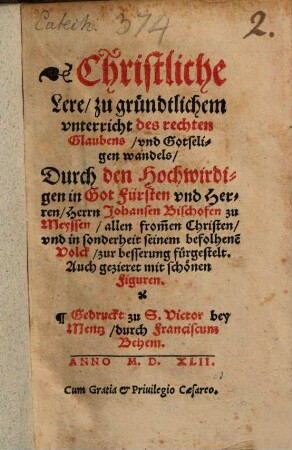 Catech. 374
2.
Christliche
Lere / zu gründtlichem
vnterricht des rechten
Glaubens / vnd Gotseli-
gen wandels /
Durch den Hochwirdi-
gen in Got Fürsten vnd Her-
ren / Herrn Johansen Bischofen zu
Meyssen / allen from̄en Christen /
vnd in sonderheit seinem befolhenē
Volck / zur besserung fürgestelt.
Auch gezieret mit schönen
Figuren.
¶ Gedruckt zu S. Victor bey
Mentz / durch Franciscum
Behem.
ANNO M. D. XLII.
Cum Gratia & Priuilegio Cæsareo.